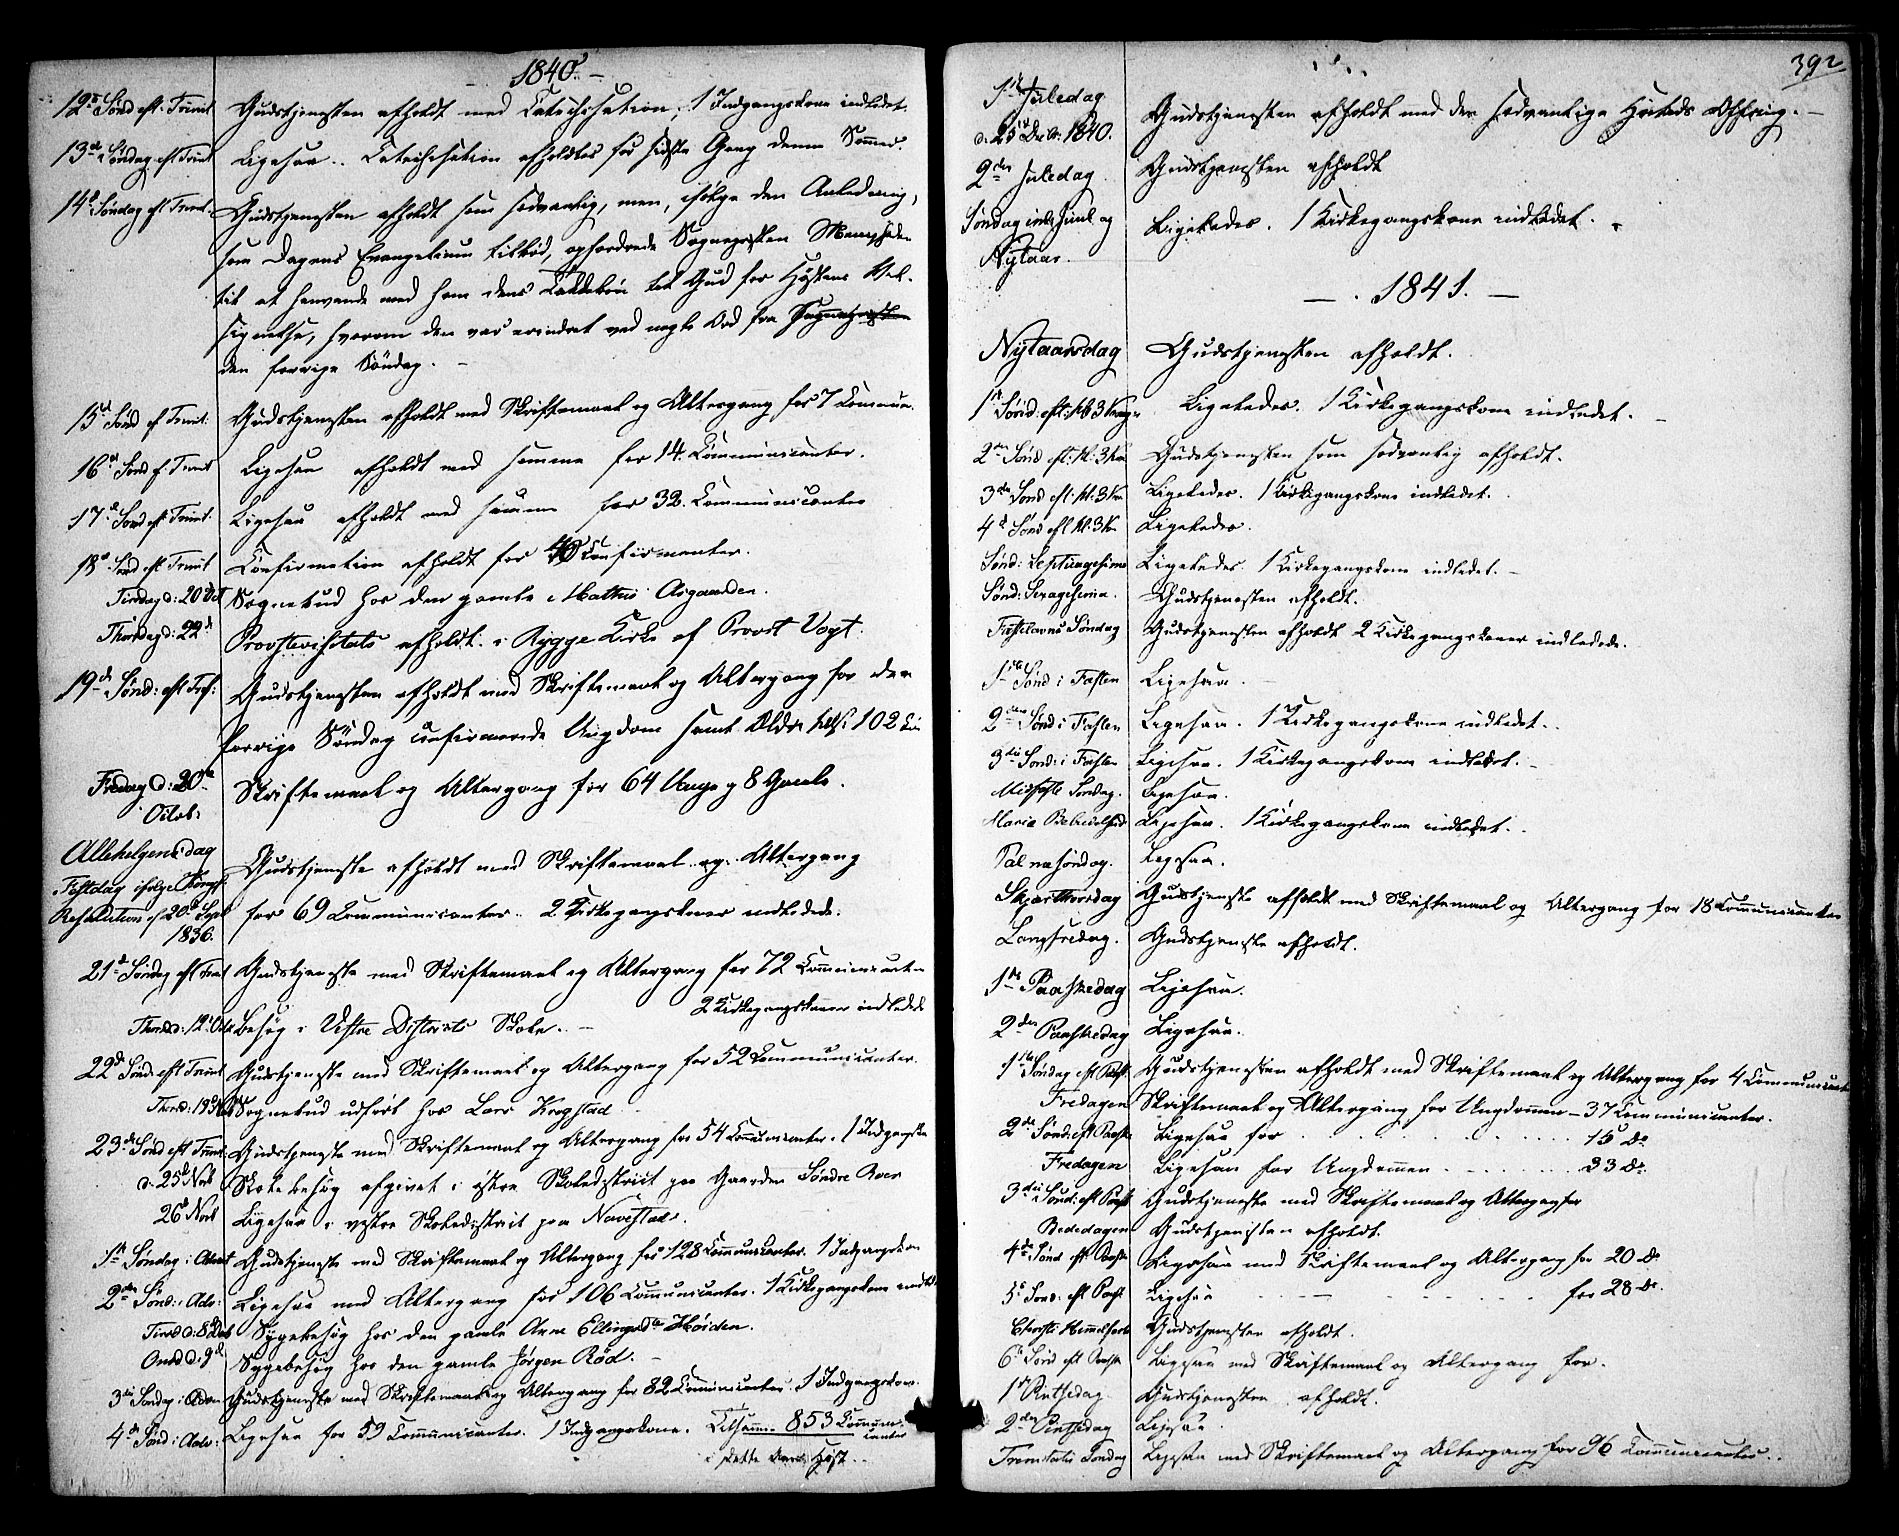 1840. –
12te Sønd eft. Trinit. Gudstjenesten afholdt med Catechisation, 1 Indgangskone indledet.
13de Søndag eft Trinit Ligesaa. Catechisation afholdtes for sidste Gang denne Sommer.
14de Søndag eft Trinit. Gudstjenesten afholdt som sædvanlig, men, ifølge den Anledning,
som Dagens Evangelium tilbød, opfordrede Sognepræsten Menigheden
til at henvende med ham dens Takkebøn til Gud for Høstens Vel-
signelse, hvorom den var erindret ved nogle Ord fra
den forrige Søndag. –
15de Sønd ef Trinit: Gudstjenesten afholdt med Skriftemaal og Altergang for 7 Commun.
16de Sønd ef Trinit Ligesaa afholdt med samme for 14. Communicanter.
17de Sønd eft Trinit. Ligesaa afholdt med samme for 32. Communicanter
18de Sønd eft Trinit Confirmation afholdt for Confirmanter.
Tirsdag d: 20 Oct Sognebud hos den gamle Mathis Aasgaarden.
Thorsdag d: 22de Provstevisitats afholdt i Rygge Kirke af Provst Vogt.
19de Sønd: eft Tref: Gudstjenesten afholdt med Skriftemaal og Altergang for den
forrige Søndag confirmerede Ungdom samt Ældre 102
Fredag d: 30te Skriftemaal og Altergang for 64 Unge og 8 Gamle.
Octob:
Allehelgensdag Gudstjeneste afholdt med Skriftemaal og Altergang
Festdag ifølge Kongl.
Resolution af 20de Sept for 69 Communicanter. 2 Kirkegangskoner indledede.
1836.
21de Søndag eft Trinit Gudstjeneste med Skriftemaal og Altergang for 72 Communicanter
2 Kirkegangskoner indledede
Thorsd: 12 Besøg i Districts Skole. –
22de Sønd: eft Trinit Gudstjeneste med Skriftemaal og Altergang for 52 Communicanter.
Thorsd: 19 Sognebud udført hos Lars Krogstad
23de Sønd eft Trinit: Gudstjeneste med Skriftemaal og Altergang for 54 Communicanter. 1 Indgangsk
d. 25de Novb Skolebesøg afgivet i østre Skoledistrict paa Gaarden Søndre Roer
26de Novb Ligesaa i vestre Skoledistrict paa Navestad.
1ste Søndag i Advent Gudstjeneste med Skriftemaal og Altergang for 128 Communicanter. 1 Indgangskone
2den Sønd: i Adv: Ligesaa med Altergang for 106 Communicanter. 1 Kirkegangskone indledet
Tirsd d: 8de Decb Sygebesøg hos den gamle Anne Ellingsdtr Høiden.
Onsd d. 9de Sygebesøg hos den gamle Jørgen Rød. –
3die Søndag i Adven Gudstjeneste med Skriftemaal og Altergang for 82 Communicanter. 1 Indgangskone.
4de Sønd: i Adv: Ligesaa for 59 Communicanter. 1 Indgangskone. Tilsamm. 853 Commun-
icanter
i dette Aars Høst.
392
1ste Juledag Gudstjenesten afholdt med den sædvanlige Høitids Offring. –
d. 25de Decbr. 1840.
2den Juledag Gudstjenesten afholdt
Søndag iml. Juul og Ligeledes. 1 Kirkegangskone indledet.
Nytaar.
– . 1841. –
Nytaarsdag Gudstjenesten afholdt.
1ste Sønd: eft: H. 3 Konger Ligeledes. 1 Kirkegangskone indledet.
2den Sønd eft: H. 3 Kon Gudstjenesten som sædvanlig afholdt.
3die Sønd eft: H. 3 Kon Ligeledes. 1 Kirkegangskone indledet.
4de Sønd eft H. 3 Kon Ligeledes.
Sønd: Septuagesima Ligeledes 1 Kirkegangskone indledet. –
Sønd: Sexagesima. Gudstjenesten afholdt.
Fastelavns Søndag Gudstjenesten afholdt 2 Kirkegangskoner indledede.
1ste Sønd i Fasten Ligesaa.
2den Sønd i Fasten Ligesaa. 1 Kirkegangskone indledet.
3die Sønd: i Fasten Ligesaa. 1 Kirkegangskone indledet. –
Midfaste Søndag. Ligesaa.
Mariæ Bebudelses Ligesaa. 1 Kirkegangskone indledet.
Palmesøndag. Ligesaa.
Skjærthorsdag Gudstjeneste afholdt med Skriftemaal og Altergang for 18 Communicanter
Langfredag. Gudstjeneste afholdt.
1ste Paaskedag Ligesaa.
2den Paaskedag Ligesaa.
1ste Søndag eft Paask Gudstjenesten afholdt med Skriftemaal og Altergang for 4 Communicanter
Fredagen Skriftemaal og Altergang for Ungdommen – 37 Communicanter.
2den Sønd: eft Paaske Ligesaa for . . . . . . 15 do
Fredagen Ligesaa for Ungdommen . . . . . 33 do.
3die Sønd: eft Paask Gudstjeneste med Skriftemaal og Altergang for
Bededagen Gudstjenesten afholdt.
4de Sønd eft Paaske Ligesaa med Skriftemaal og Altergang for 20 do
5te Sønd: eft Paaske Ligesaa – – – – – for 28 do.
Christi Himmelfarts Gudstjenesten afholdt.
6te Sønd eft Paaske Ligesaa med Skriftemaal og Altergang for.
1ste Pintsedag. Gudstjenesten afholdt.
2den Pintsedag Ligesaa
Trinitatis Søndag Ligesaa med Skriftemaal og Altergang for 96 Communicanter.